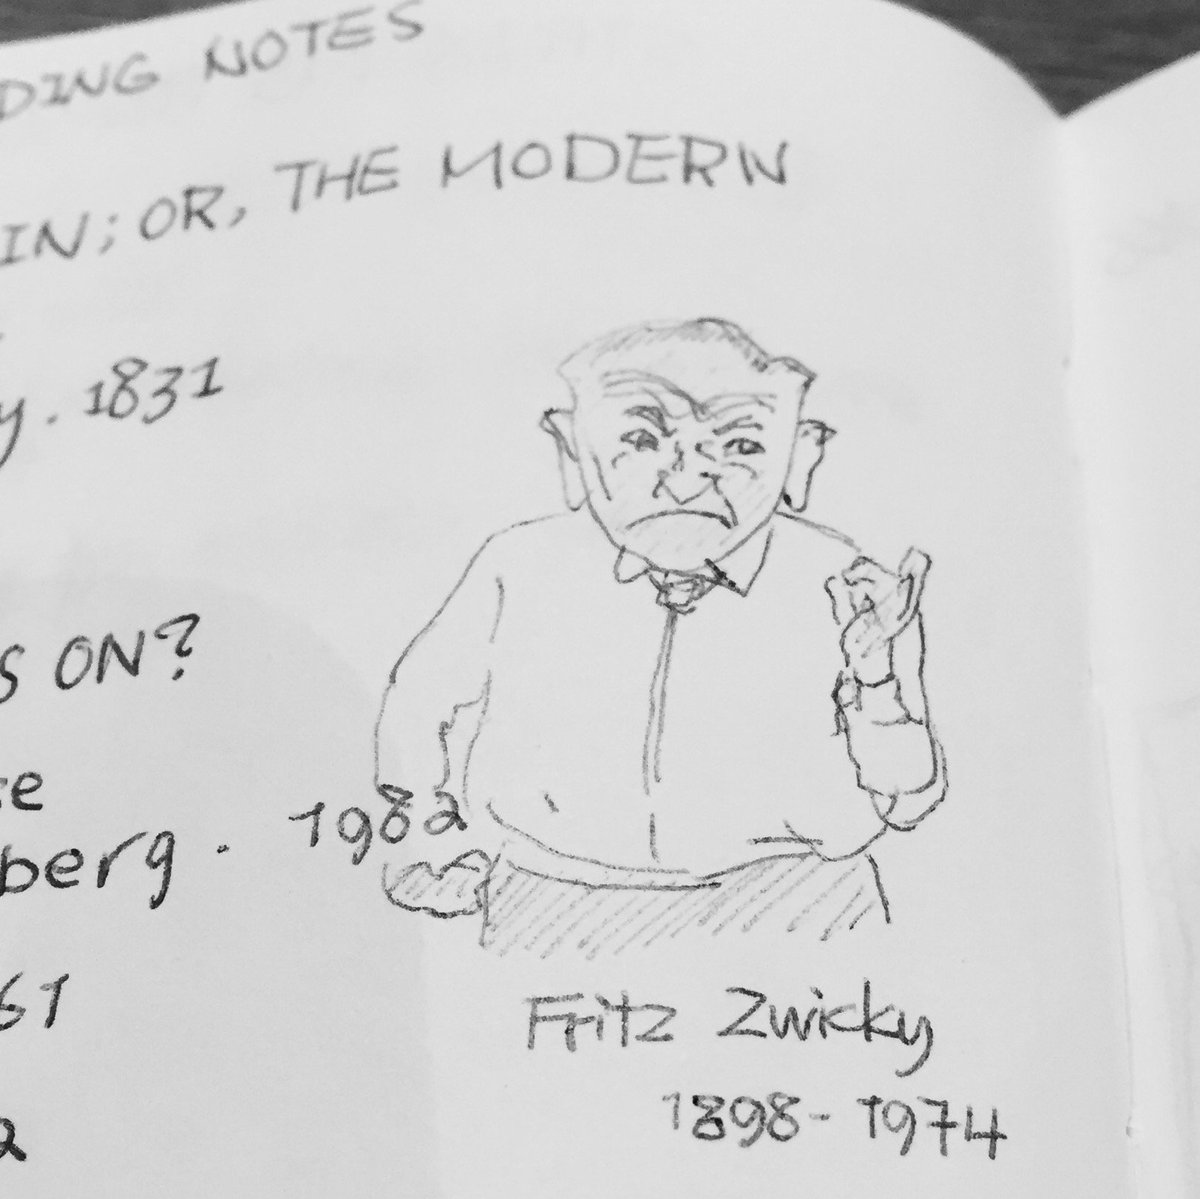 DING NOTES
IN; OR, THE MODERN
y. 1831
S ON?
te
berg. 1982
61
a
Fritz Zwicky
1898-1974